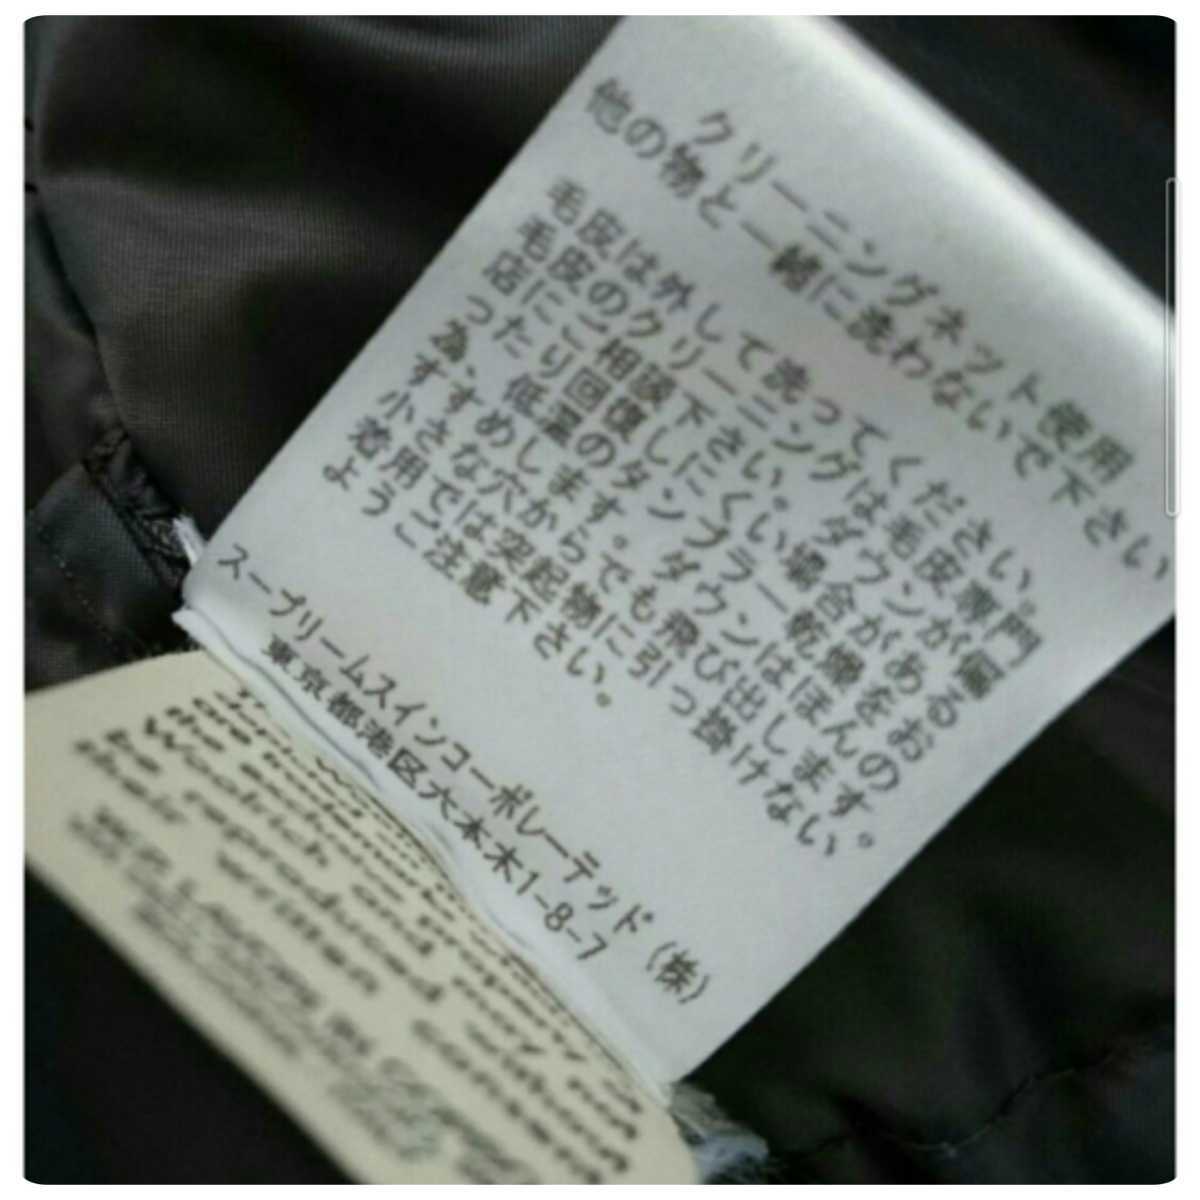 クリーニングネット使用
他の物と一緒に洗わないで下さい
毛皮は外して洗ってください。
毛皮のクリーニングは毛皮専門
店にご相談下さい。ダウンが偏
ったり回復しにくい場合がある
為、低温のタンブラー乾燥をお
すすめします。ダウンはほんの
小さな穴からでも飛び出します。
着用では突起物に引っ掛けない
ようご注意下さい。
スープリームスインコーポレーテッド（株）
東京都港区六本木1-8-7
Woolrich and may not
be reproduced without
their written consent